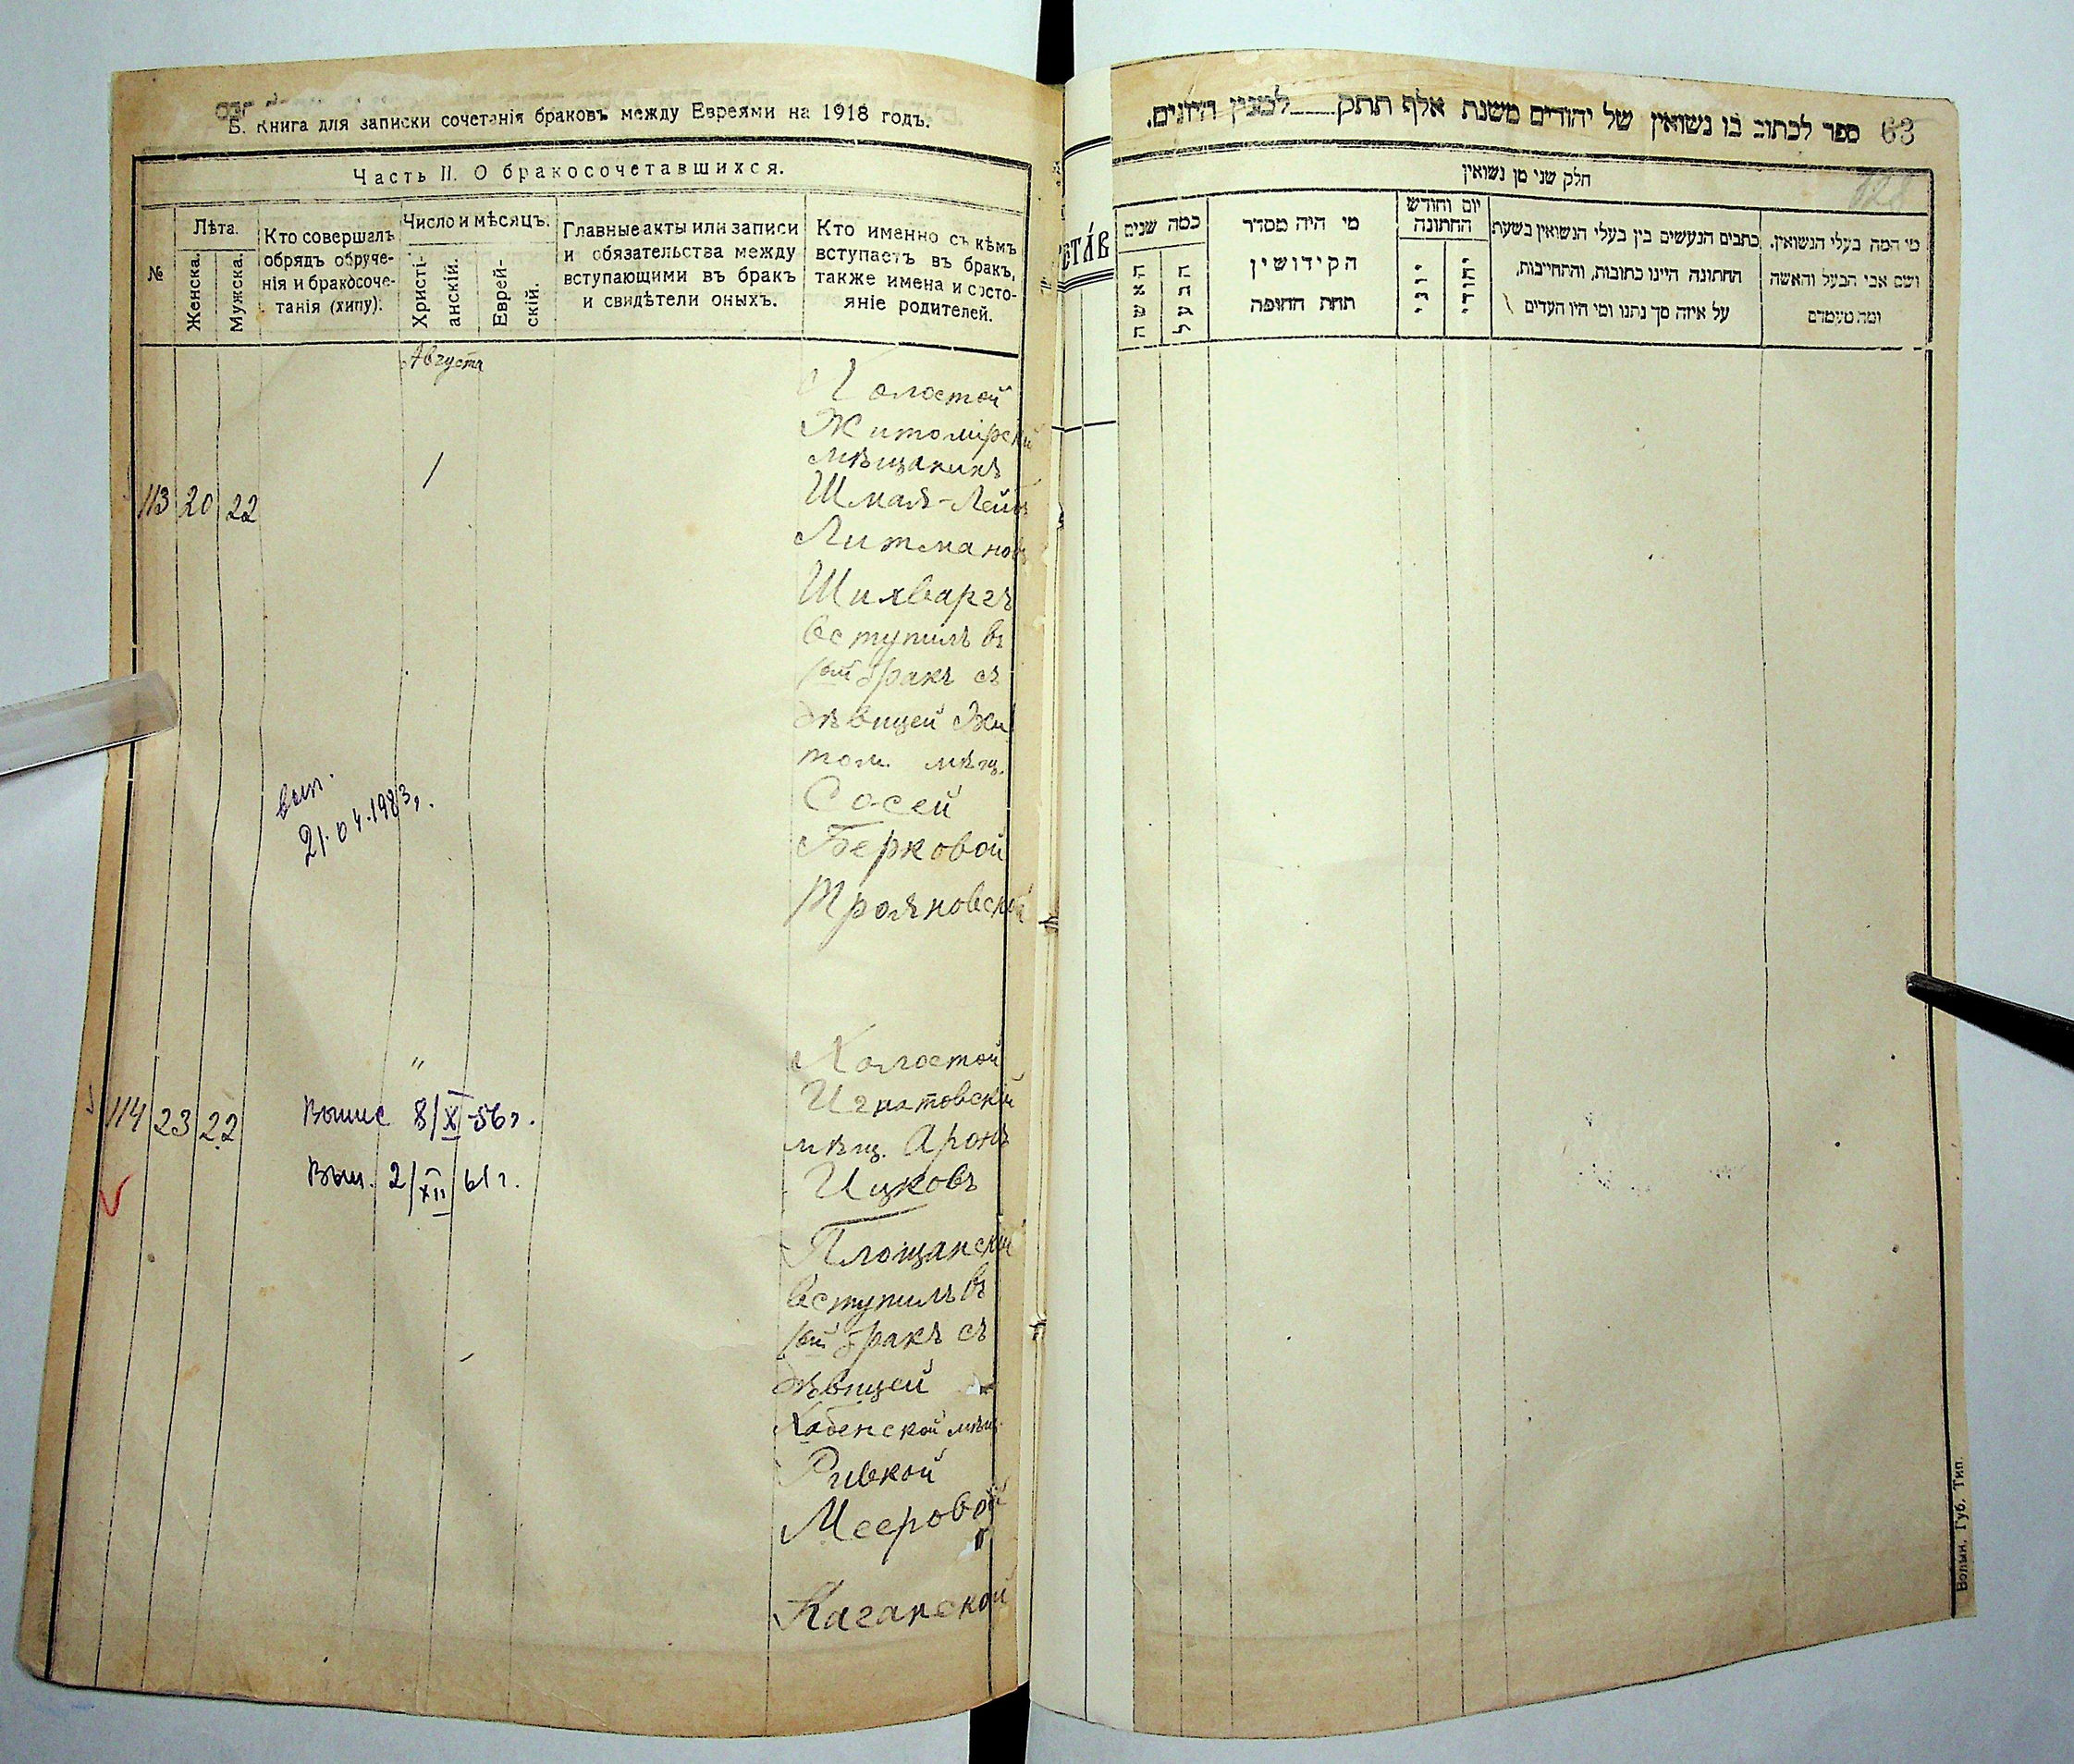 Б. Книга для записки сочетанія браковъ между Евреями на 1918 годъ.
Часть II. О бракосочетавшихся.
№
Лѣта.
Женска.
Мужска.
Кто совершалъ
обрядъ обруче-
нія и бракосоче-
танія (хипу).
Число и мѣсяцъ.
Христі-
анскій.
Еврей-
скій.
Главные акты или записи
и обязательства между
вступающими въ бракъ
и свидѣтели оныхъ.
Кто именно съ кѣмъ
вступаетъ въ бракъ,
также имена и состо-
яніе родителей.
Августа
113 20 22
1
Холостой
Житомірскій
мѣщанинъ
Шмаль-Лейбъ
Литмановъ
Шихваргъ
вступилъ въ
1ый бракъ съ
дѣвицей Жи
том. мѣщ.
Сосей
Берковой
Трояновской
вып.
21.04.1983г.
114 23 22
"
Выпис 8/X-56г.
Вып. 2/XII 61г.
Холостой
Игнатовскій
мѣщ. Аронъ
Ицковъ
Площанскій
вступилъ въ
1ый бракъ съ
дѣвицей
Хабенской мѣщ.
Ривкой
Мееровой
Каганской
63
ספר לכתוב בו נשואין של יהודים משנת אלף תתק___למנין היונים.
חלק שני מן נשואין
מי המה בעלי הנשואין.
ושם אבי הבעל והאשה
ומה מעמדם
כתבים הנעשים בין בעלי הנשואין בשעת
החתונה היינו כתובות, והתחייבות,
על איזה סך נתנו ומי היו העדים
יום וחודש
החתונה
יהודי
יוני
מי היה מסדר
הקידושין
תחת החופה
כמה שנים
הבעל
האשה
Волын. Губ. Тип.